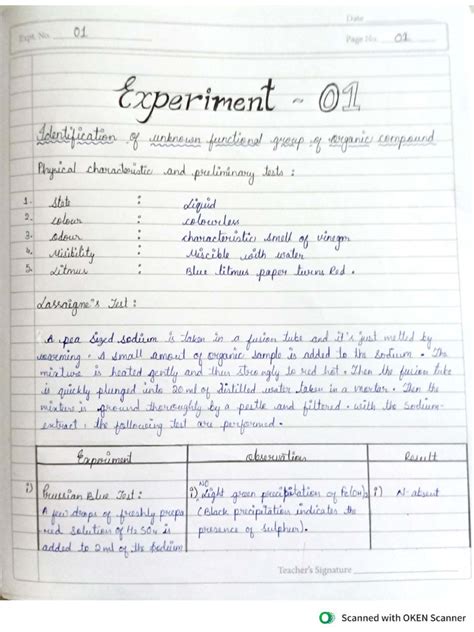 Date
Expt. No. 01
Page No. 01
Experiment - 01
Identification of unknown functional group of organic compound
Physical characteristic and preliminary tests :
1. State : Liquid
2. colour : colourless
3. odour : characteristic smell of vinegar
4. Misibility : Miscible with water
5. Litmus : Blue litmus paper turns Red.
Lassaigne's Test :
A pea sized sodium is taken in a fusion tube and it's just melted by
warming. A small amout of organic sample is added to the sodium. The
mixture is heated gently and then strongly to red hot. Then the fusion tube
is quickly plunged into 20 ml of distilled water taken in a mortar. Then the
mixture is ground thoroughly by a pestle and filtered. with the Sodium-
extract, the following test are performed.
Experiment observation Result
i) Prussian Blue Test : i) NO Light green precipitation of i) N-absent
A few drops of freshly prepa (Black precipitation indicates the
red solution of H2SO4 is presence of sulphur).
added to 2 ml of the sodium
Teacher's Signature
Scanned with OKEN Scanner